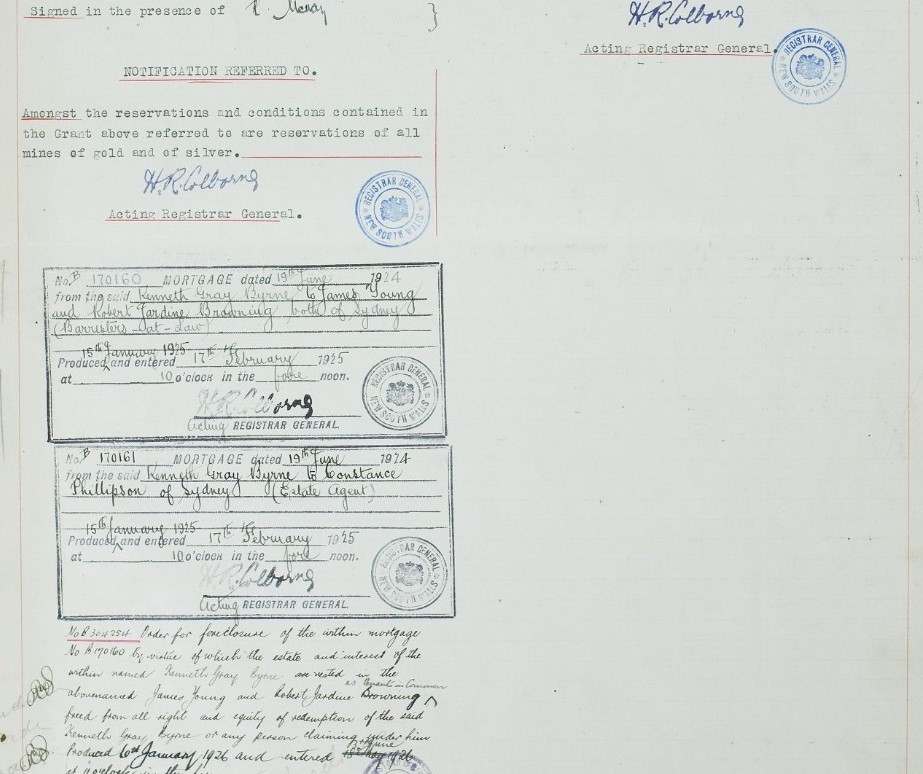 Signed in the presence of
H.R. Colborne
Acting Registrar General.
REGISTRAR GENERAL
NEW SOUTH WALES
NOTIFICATION REFERRED TO.
Amongst the reservations and conditions contained in
the Grant above referred to are reservations of all
mines of gold and of silver.
H.R. Colborne
Acting Registrar General.
REGISTRAR GENERAL
NEW SOUTH WALES
No. B 170160 MORTGAGE dated 19th June 1924
from the said Kenneth Gray Byrne to James Young
and Robert Jardine Browning both of Sydney
(Barristers-at-Law)
15th January 1925
Produced and entered 17th February 1925
at 10 o'clock in the fore noon.
H.R. Colborne
Acting REGISTRAR GENERAL.
REGISTRAR GENERAL
NEW SOUTH WALES
No. B 170161 MORTGAGE dated 19th June 1924
from the said Kenneth Gray Byrne to Constance
Phillipson of Sydney (Estate Agent)
15th January 1925
Produced and entered 17th February 1925
at 10 o'clock in the fore noon.
H.R. Colborne
Acting REGISTRAR GENERAL.
REGISTRAR GENERAL
NEW SOUTH WALES
No B 304254 Order for foreclosure of the within mortgage
No B 170160 by virtue of which the estate and interest of the
within named Kenneth Gray Byrne are vested in the
as Tenants in Common
abovenamed James Young and Robert Jardine Browning
freed from all right and equity of redemption of the said
Kenneth Gray Byrne or any person claiming under him
Produced January 1926 and entered 1926